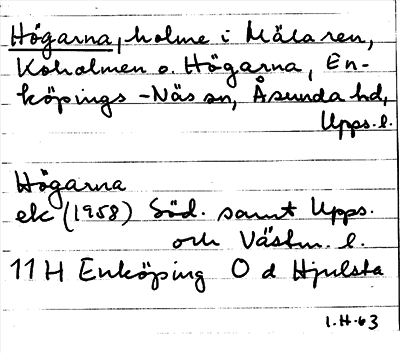 Högarna, holme i Mälaren,
Koholmen o. Högarna, En-
köpings-Näs sn, Åsunda hd,
Upps. l.
Högarna
ek (1958) Söd. samt Upps.
och Västm. l.
11 H Enköping O d Hjulsta
1.H.63